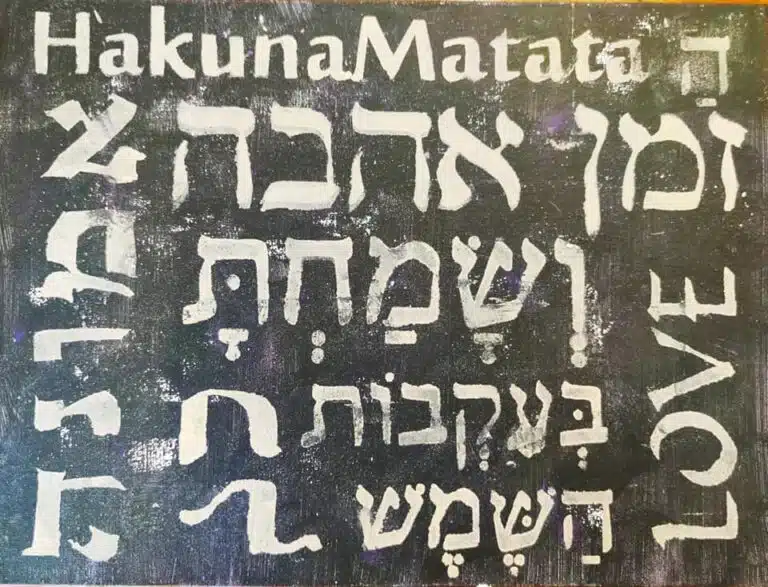 HakunaMatata
הַ
זמן אהבה
וְשָׂמַחְתָּ
בְּעִקְבוֹת
הַשֶּׁמֶשׁ
אמונה
LOVE